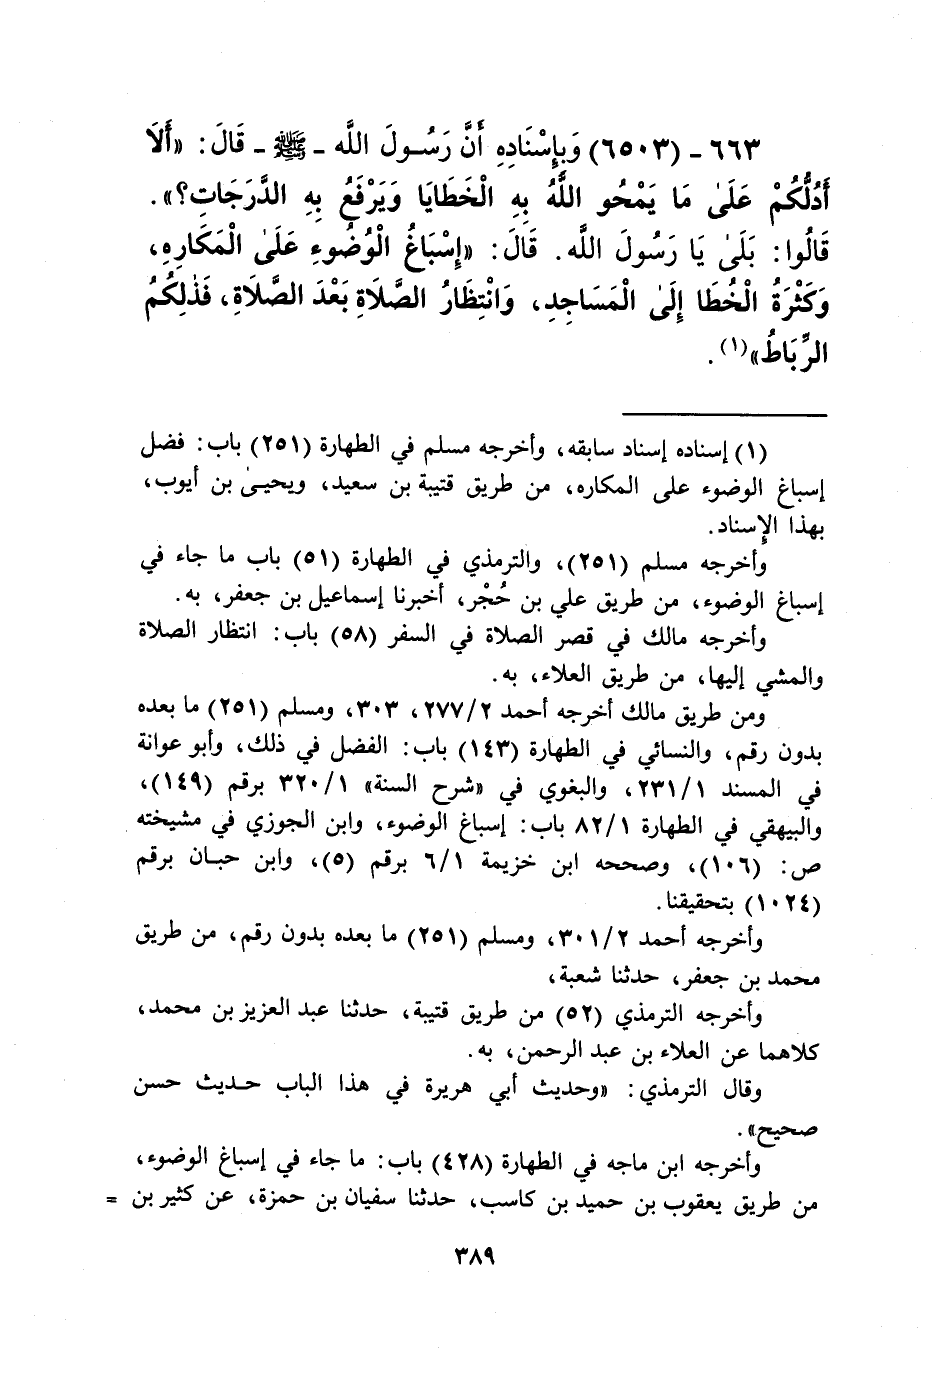 ٦٦٣ - (٦٥٠٣) وَبِإِسْنَادِهِ أَنَّ رَسُولَ اللَّه - ﷺ - قَالَ: «أَلَا
أَدُلُّكُمْ عَلَىٰ مَا يَمْحُو اللَّهُ بِهِ الْخَطَايَا وَيَرْفَعُ بِهِ الدَّرَجَاتِ؟».
قَالُوا: بَلَىٰ يَا رَسُولَ اللَّه. قَالَ: «إِسْبَاغُ الْوُضُوءِ عَلَىٰ الْمَكَارِهِ،
وَكَثْرَةُ الْخُطَا إِلَىٰ الْمَسَاجِدِ، وَانْتِظَارُ الصَّلَاةِ بَعْدَ الصَّلَاةِ، فَذٰلِكُمُ
الرِّبَاطُ»(١).
(١) إسناده إسناد سابقه، وأخرجه مسلم في الطهارة (٢٥١) باب: فضل
إسباغ الوضوء على المكاره، من طريق قتيبة بن سعيد، ويحيىٰ بن أيوب،
بهذا الإسناد.
وأخرجه مسلم (٢٥١)، والترمذي في الطهارة (٥١) باب ما جاء في
إسباغ الوضوء، من طريق علي بن حُجْر، أخبرنا إسماعيل بن جعفر، به.
وأخرجه مالك في قصر الصلاة في السفر (٥٨) باب: انتظار الصلاة
والمشي إليها، من طريق العلاء، به.
ومن طريق مالك أخرجه أحمد ٢٧٧/٢، ٣٠٣، ومسلم (٢٥١) ما بعده
بدون رقم، والنسائي في الطهارة (١٤٣) باب: الفضل في ذلك، وأبو عوانة
في المسند ٢٣١/١، والبغوي في «شرح السنة» ٣٢٠/١ برقم (١٤٩)،
والبيهقي في الطهارة ٨٢/١ باب: إسباغ الوضوء، وابن الجوزي في مشيخته
ص: (١٠٦)، وصححه ابن خزيمة ٦/١ برقم (٥)، وابن حبان برقم
(١٠٢٤) بتحقيقنا.
وأخرجه أحمد ٣٠١/٢، ومسلم (٢٥١) ما بعده بدون رقم، من طريق
محمد بن جعفر، حدثنا شعبة،
وأخرجه الترمذي (٥٢) من طريق قتيبة، حدثنا عبد العزيز بن محمد،
كلاهما عن العلاء بن عبد الرحمن، به.
وقال الترمذي: «وحديث أبي هريرة في هذا الباب حديث حسن
صحيح».
وأخرجه ابن ماجه في الطهارة (٤٢٨) باب: ما جاء في إسباغ الوضوء،
من طريق يعقوب بن حميد بن كاسب، حدثنا سفيان بن حمزة، عن كثير بن =
٣٨٩